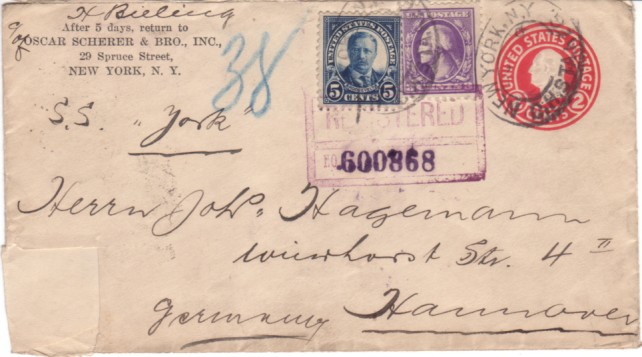 H. Bieling
c/o
After 5 days, return to
OSCAR SCHERER & BRO., INC.,
29 Spruce Street,
NEW YORK, N. Y.
38
UNITED STATES POSTAGE
5 CENTS 5
U.S. POSTAGE
NEW YORK, N.Y.
UNITED STATES POSTAGE
2 CENTS 2
REGISTERED
NO. 600868
S.S. "York"
Herrn Johs. Hagemann
Str. 4 II
Hannover
Germany